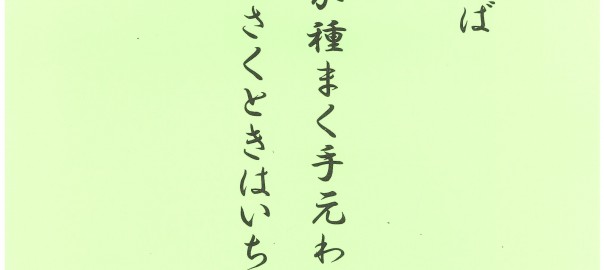 ば
種まく手元わ
さくときはいち